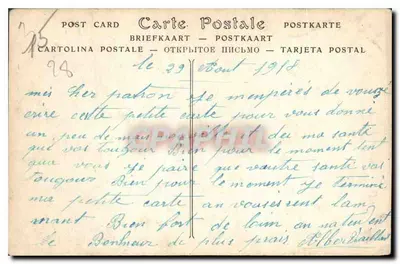 POST CARD Carte Postale POSTKARTE
BRIEFKAART — POSTKAART
CARTOLINA POSTALE — ОТКРЫТОЕ ПИСЬМО — TARJETA POSTAL
15
28
le 29 Aout 1918
mes cher patron Je m'enperés de vouze
crire cette petite carte pour vous donné
un peu de mes et deu ma santé
qui vas toujour Bien pour le moment tent
que vous Je paire que voutre santé vas
tougour Bien pour le moment Je terminé
ma petite carte an vouserent lam
mant Bien fort de loim an natentent
le Bonheur de plus prais Albert